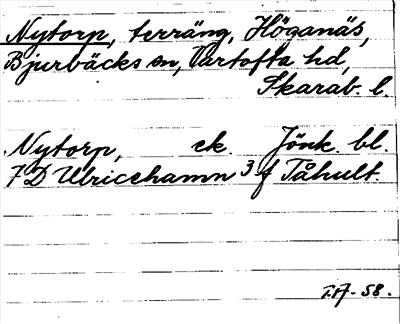 Nytorp, terräng, Höganäs,
Bjurbäcks sn, Vartofta hd,
Skarab. l.
Nytorp, ek. Jönk. bl.
7 D Ulricehamn 3 f Tåhult.
T.A-58.